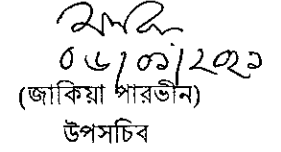 ০৬/০১/২০২১
(জাকিয়া পারভীন)
উপসচিব